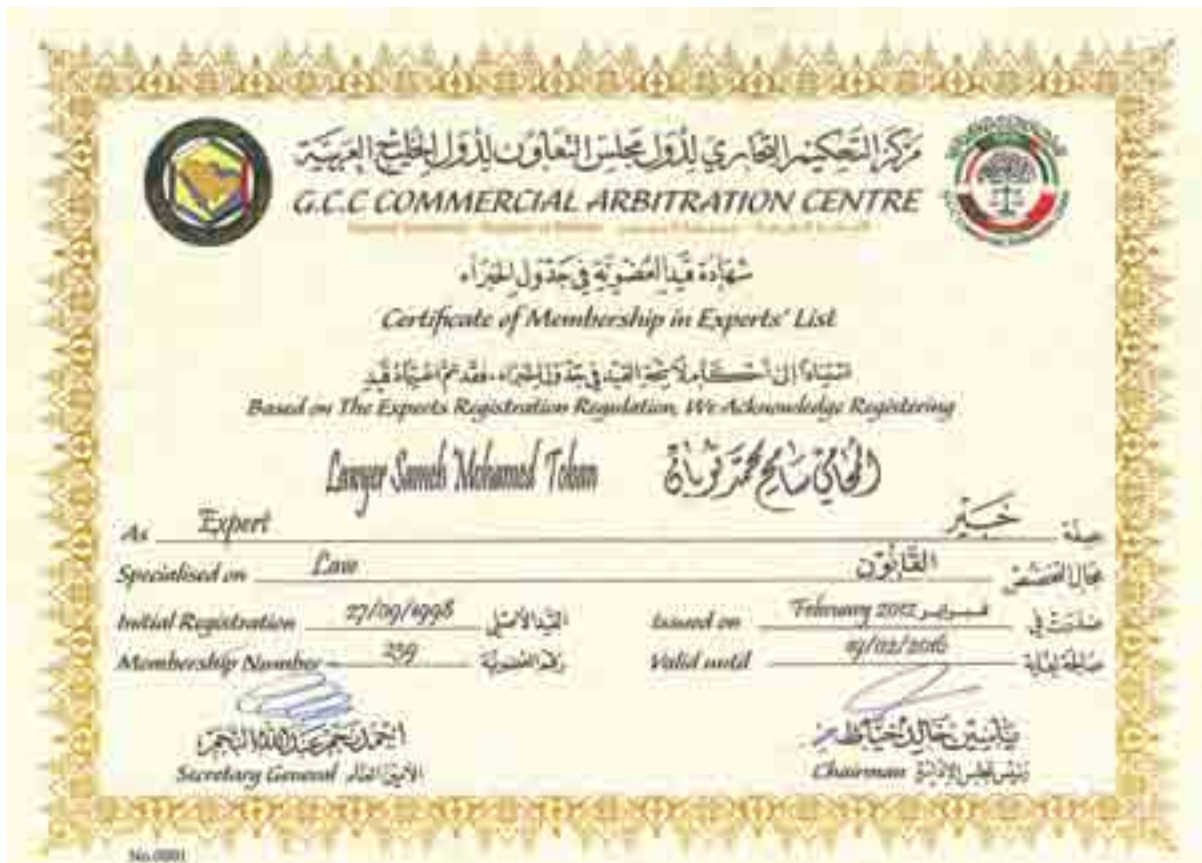 مركز التحكيم التجاري لدول مجلس التعاون لدول الخليج العربية
G.C.C COMMERCIAL ARBITRATION CENTRE
شهادة قيد العضوية في جدول الخبراء
Certificate of Membership in Experts' List
استناداً إلى أحكام لائحة القيد في جدول الخبراء، فقد تم اعتماد قيد
Based on The Experts Registration Regulation, We Acknowledge Registering
Lawyer Sameh Mohamed Toban المحامي سامح محمد توبان
As Expert خبير بصفة
Specialised on Law القانون مجال التخصص
Initial Registration 27/09/1998 القيد الأصلي Issued on February 2012 فبراير صدرت في
Membership Number 239 رقم العضوية Valid until 19/02/2016 صالحة لغاية
أحمد نجم عبدالله النجم ياسين خالد خياط
Secretary General الأمين العام Chairman رئيس مجلس الإدارة
No.0001